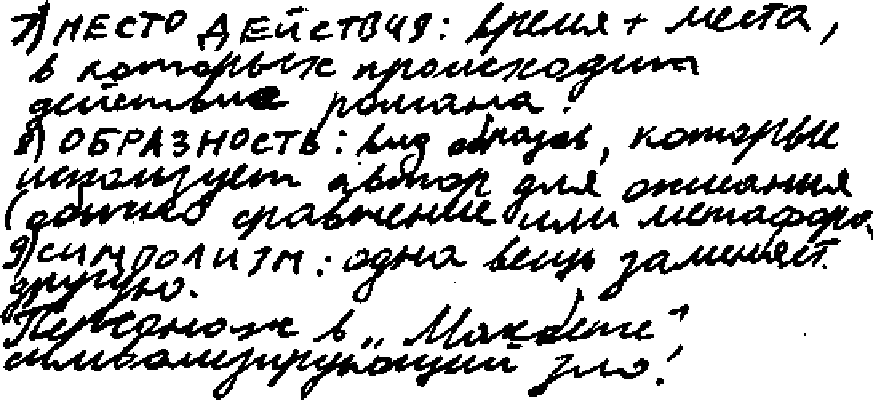 7) МЕСТО ДЕЙСТВИЯ: время + места,
в которых происходит
действие романа.
8) ОБРАЗНОСТЬ: вид образов, которые
использует автор для описания
(обычно сравнение или метафора)
9) СИМВОЛИЗМ: одна вещь заменяет
другую.
Персонаж в „Макбете”,
символизирующий зло!